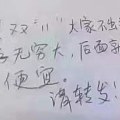 双"11"大家不出
无穷大,后面
便宜。
请转发!